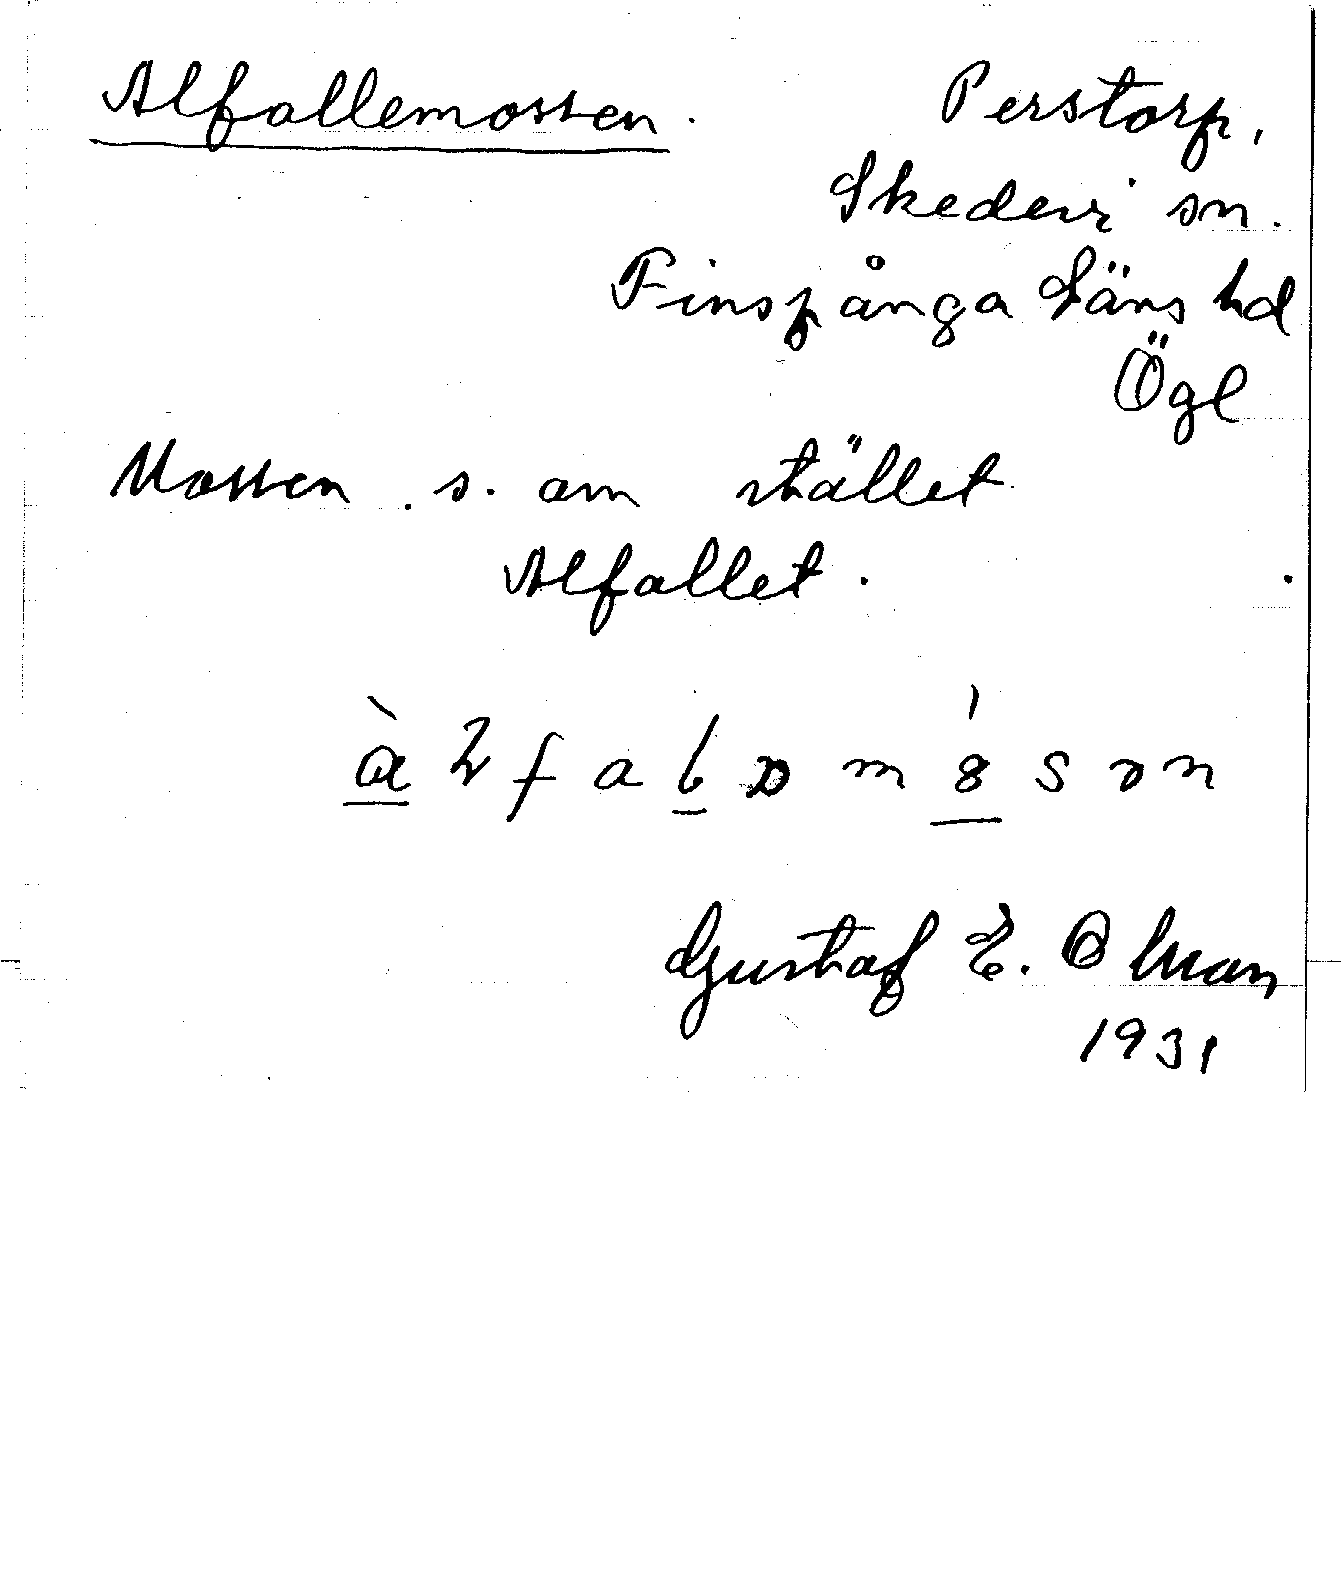 Alfallemossen. Perstorp,
Skedevi sn.
Finspånga Läns hd
Ögl
Mossen s. om stället
Alfallet.
Gustaf E. Ohman
1931